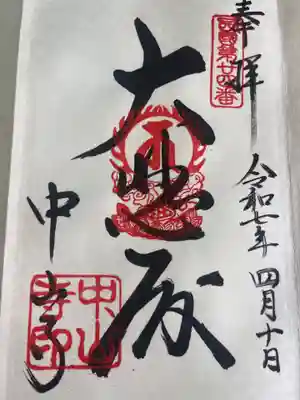 奉拝
西國第廿四番
令和七年四月十日
大悲殿
中山寺
中山寺印